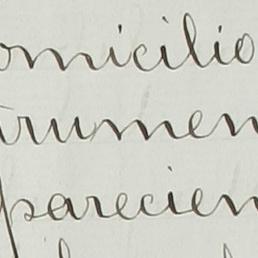 omicilio
trumen
parecien